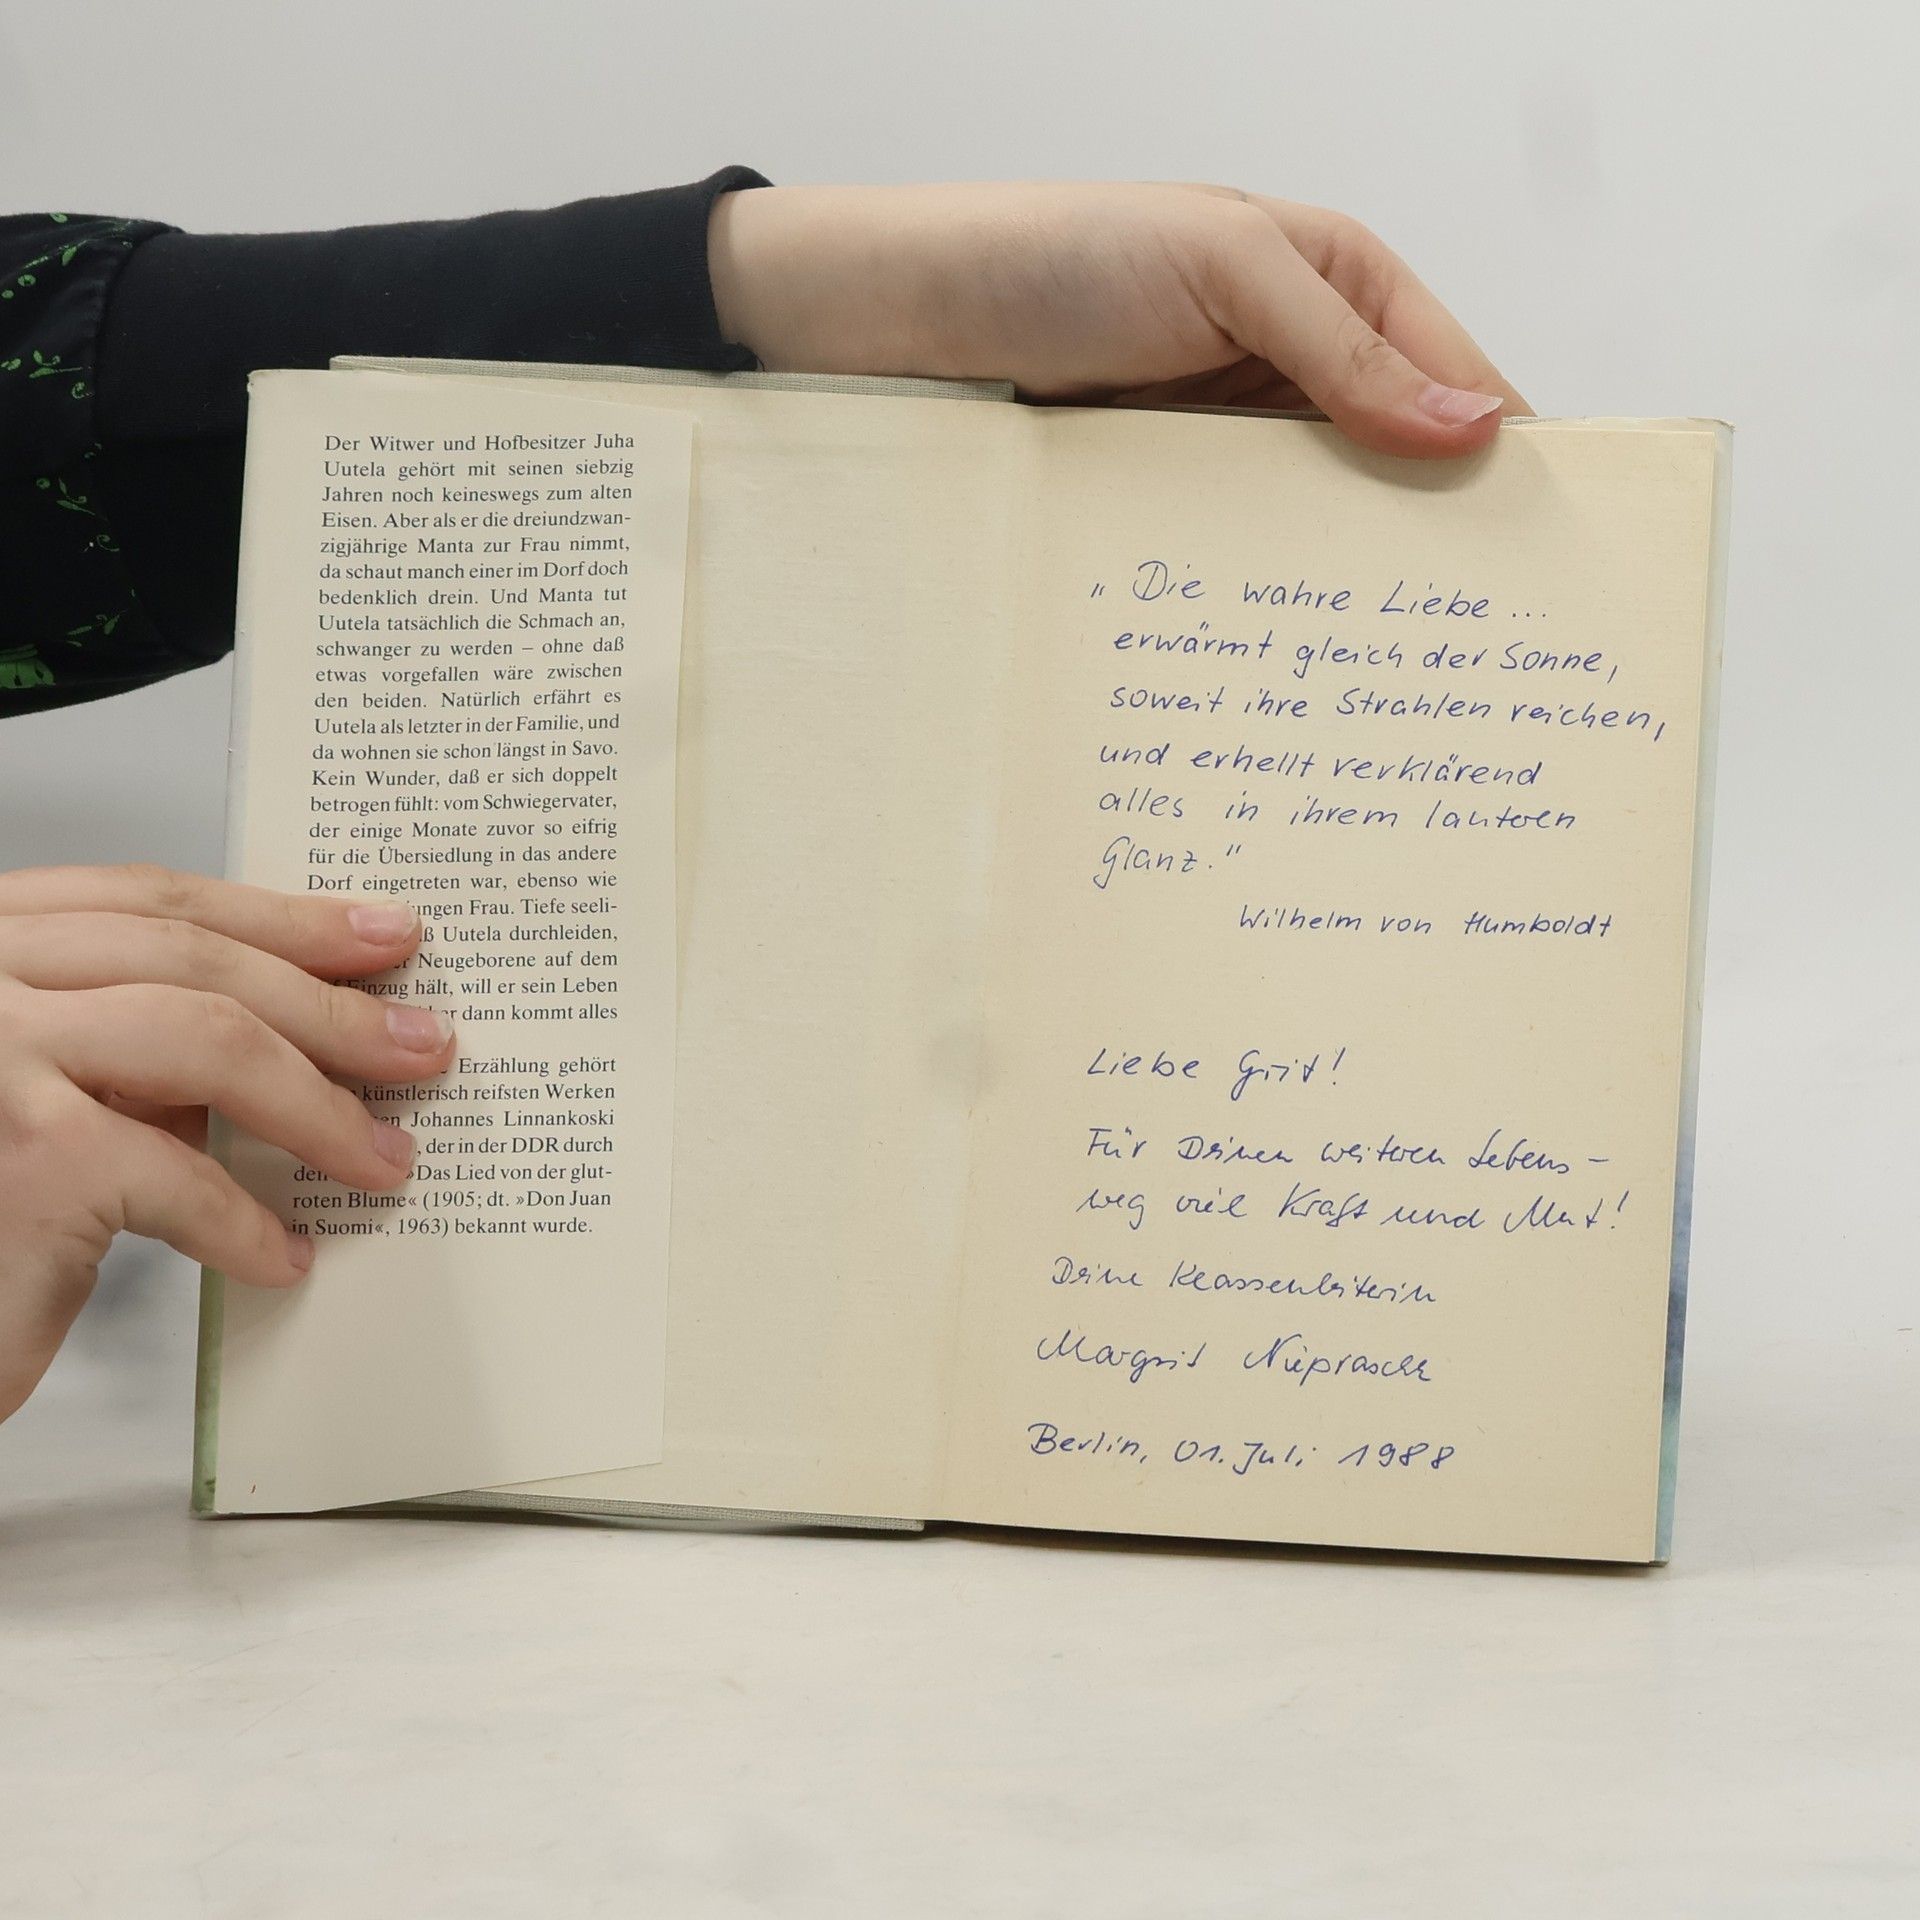 Der Witwer und Hofbesitzer Juha
Uutela gehört mit seinen siebzig
Jahren noch keineswegs zum alten
Eisen. Aber als er die dreiundzwan-
zigjährige Manta zur Frau nimmt,
da schaut manch einer im Dorf doch
bedenklich drein. Und Manta tut
Uutela tatsächlich die Schmach an,
schwanger zu werden – ohne daß
etwas vorgefallen wäre zwischen
den beiden. Natürlich erfährt es
Uutela als letzter in der Familie, und
da wohnen sie schon längst in Savo.
Kein Wunder, daß er sich doppelt
betrogen fühlt: vom Schwiegervater,
der einige Monate zuvor so eifrig
für die Übersiedlung in das andere
Dorf eingetreten war, ebenso wie
Frau. Tiefe seeli-
Uutela durchleiden,
Neugeborene auf dem
Einzug hält, will er sein Leben
dann kommt alles
Erzählung gehört
künstlerisch reifsten Werken
Johannes Linnankoski
, der in der DDR durch
»Das Lied von der glut-
roten Blume« (1905; dt. »Don Juan
in Suomi«, 1963) bekannt wurde.
„Die wahre Liebe ...
erwärmt gleich der Sonne,
soweit ihre Strahlen reichen,
und erhellt verklärend
alles in ihrem lauteren
Glanz."
Wilhelm von Humboldt
Liebe Grit!
Für Deinen weiteren Lebens-
weg viel Kraft und Mut!
Deine Klassenleiterin
Margrit
Berlin, 01. Juli 1988